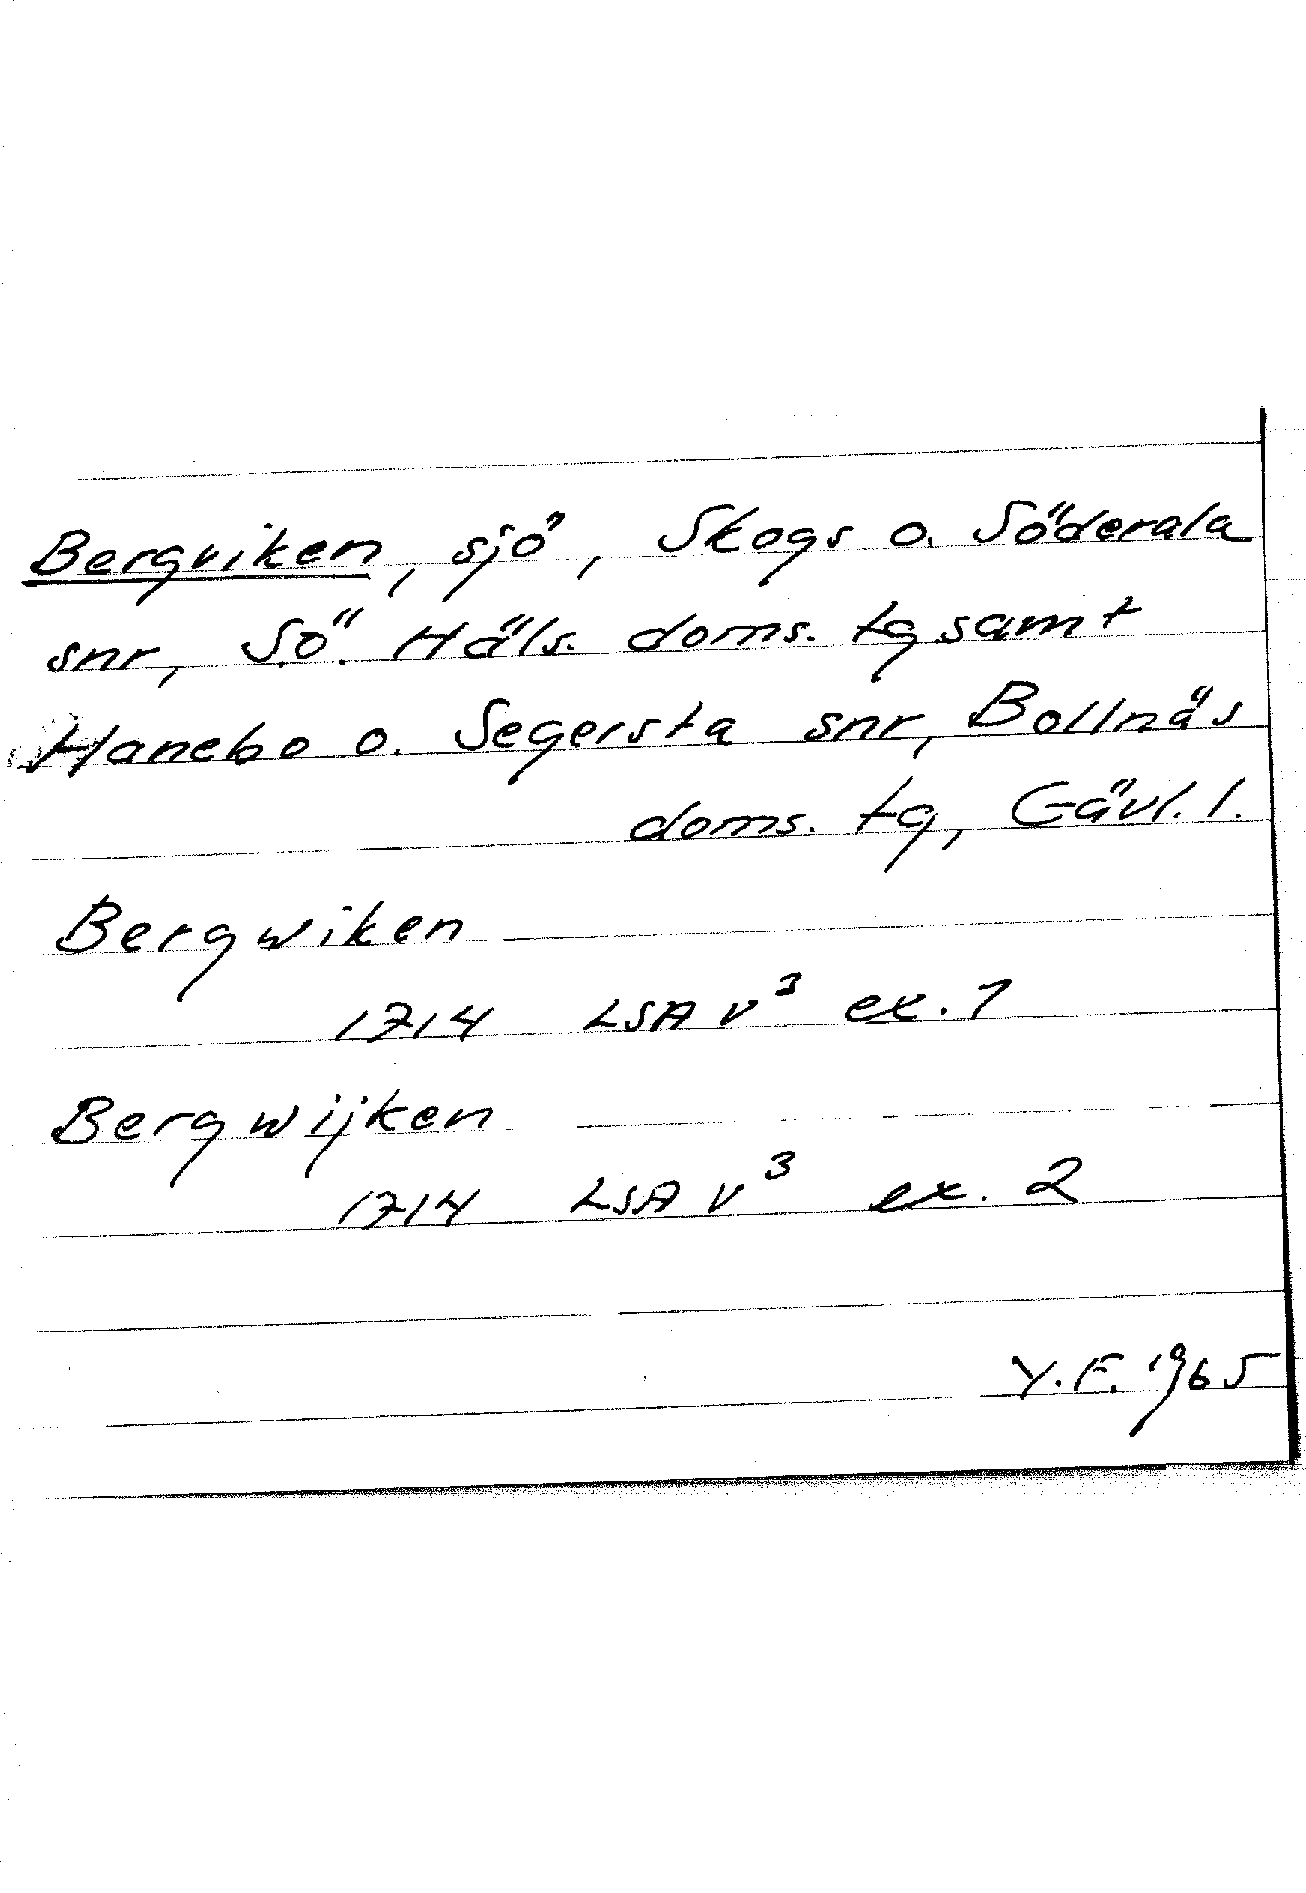 Bergviken, sjö, Skogs o. Söderala
snr, S.ö. Häls. doms. tg samt
Hanebo o. Segersta snr, Bollnäs
doms. tg, Gävl. l.
Bergwiken
1714 LSA V³ ex. 1
Bergwijken
1714 LSA V³ ex. 2
Y.F. 1965